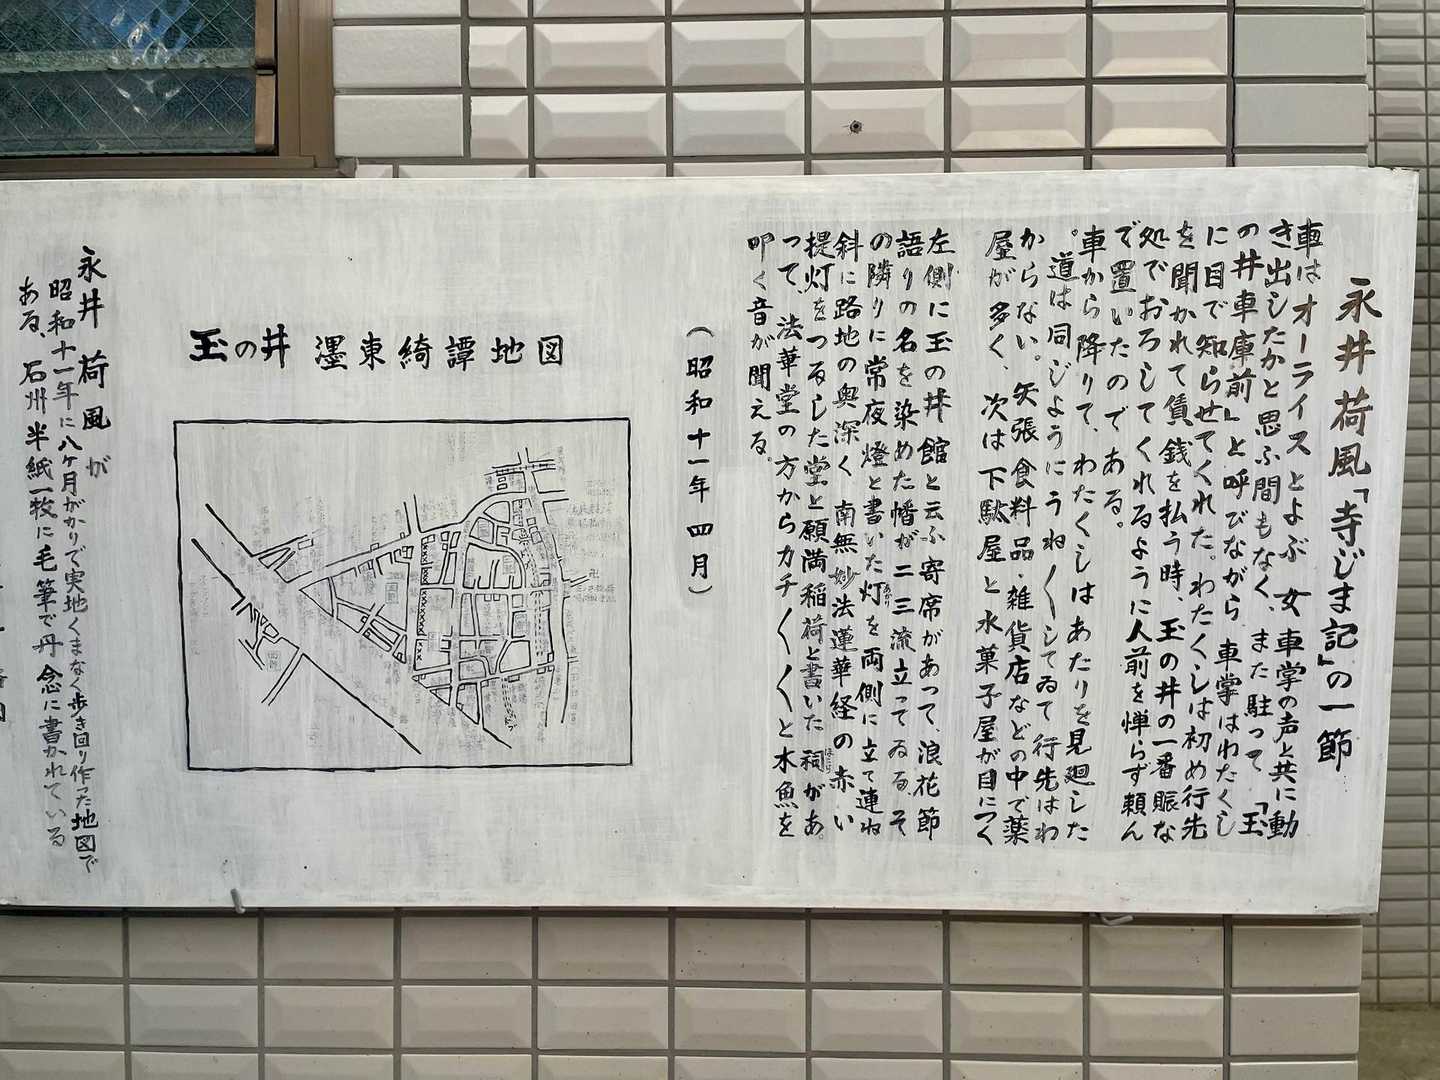 永井荷風「寺じま記」の一節
車はオーライスとよぶ女車掌の声と共に動
き出したかと思ふ間もなく、また駐って「玉
の井車庫前」と呼びながら車掌はわたくし
に目で知らせてくれた。わたくしは初め行先
を聞かれて賃銭を払う時、玉の井の一番賑な
処でおろしてくれるように人前を憚らず頼ん
で置いたのである。
車から降りて、わたくしはあたりを見廻した
。道は同じようにうねくしてゐて行先はわ
からない。矢張食料品・雑貨店などの中で薬
屋が多く、次は下駄屋と水菓子屋が目につく
左側に玉の井館と云ふ寄席があって、浪花節
語りの名を染めた幡が二三流立ってゐるそ
の隣りに常夜燈と書いた灯を両側に立て連ね
あかり
斜に路地の奥深く南無妙法蓮華経の赤い
提灯をつるした堂と願満稲荷と書いた祠があ
ほこら
って、法華堂の方からカチくくと木魚を
叩く音が聞える。
(昭和十一年四月)
玉の井 濹東綺譚地図
永井荷風が
昭和十一年に八ヶ月がかりで実地くまなく歩き回り作った地図で
ある、石州半紙一枚に毛筆で丹念に書かれている